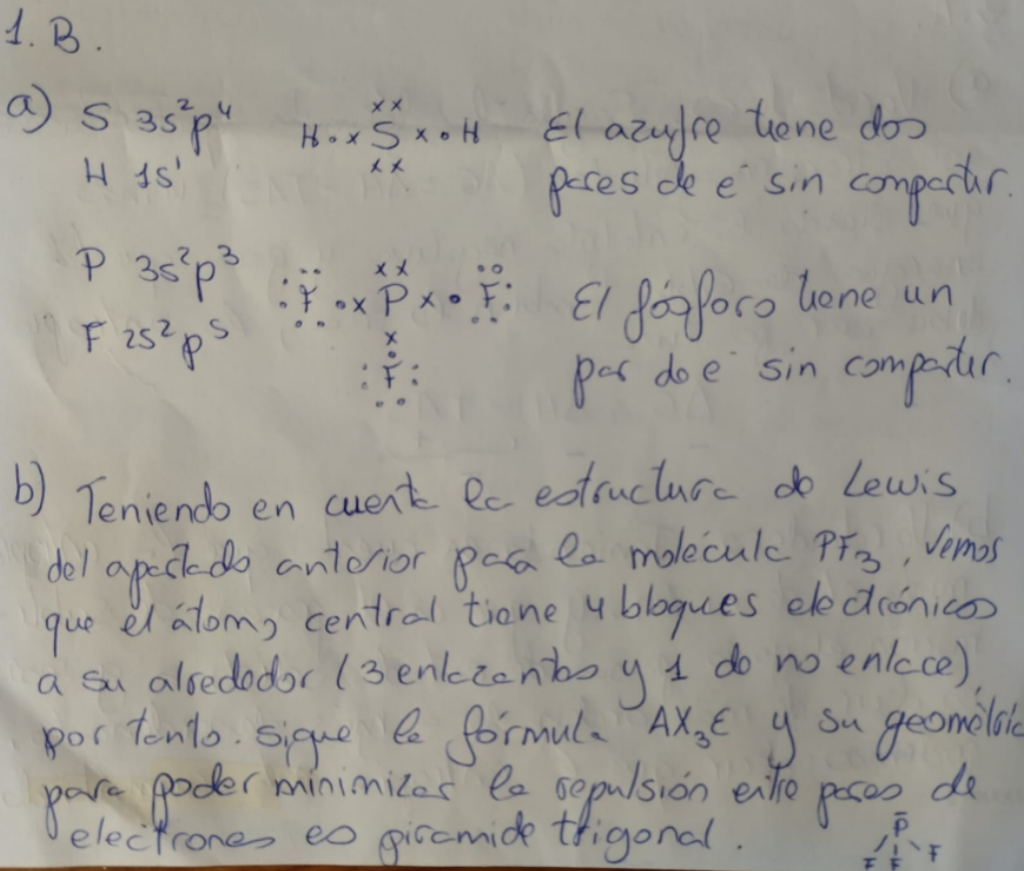 1. B.
a) S 3s²p⁴ H·xSx·H El azufre tiene dos
H 1s¹ pares de e⁻ sin compartir.
P 3s²p³ :F·xPx·F: El fósforo tiene un
F 2s²p⁵ :F: par de e⁻ sin compartir.
b) Teniendo en cuenta la estructura de Lewis
del apartado anterior para la molécula PF₃, vemos
que el átomo central tiene 4 bloques electrónicos
a su alrededor (3 enlazantes y 1 de no enlace),
por tanto. sigue la fórmula AX₃E y su geométric
para poder minimizar la repulsión entre pares de
electrones es piramide trigonal.
P
F F F